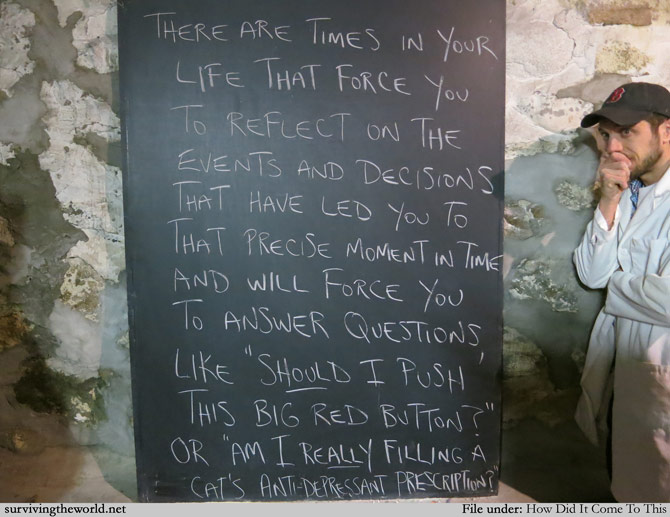 THERE ARE TIMES IN YOUR
LIFE THAT FORCE YOU
TO REFLECT ON THE
EVENTS AND DECISIONS
THAT HAVE LED YOU TO
THAT PRECISE MOMENT IN TIME
AND WILL FORCE YOU
TO ANSWER QUESTIONS,
LIKE "SHOULD I PUSH
THIS BIG RED BUTTON?"
OR "AM I REALLY FILLING A
CAT'S ANTI-DEPRESSANT PRESCRIPTION?"
B
survivingtheworld.net
File under: How Did It Come To This